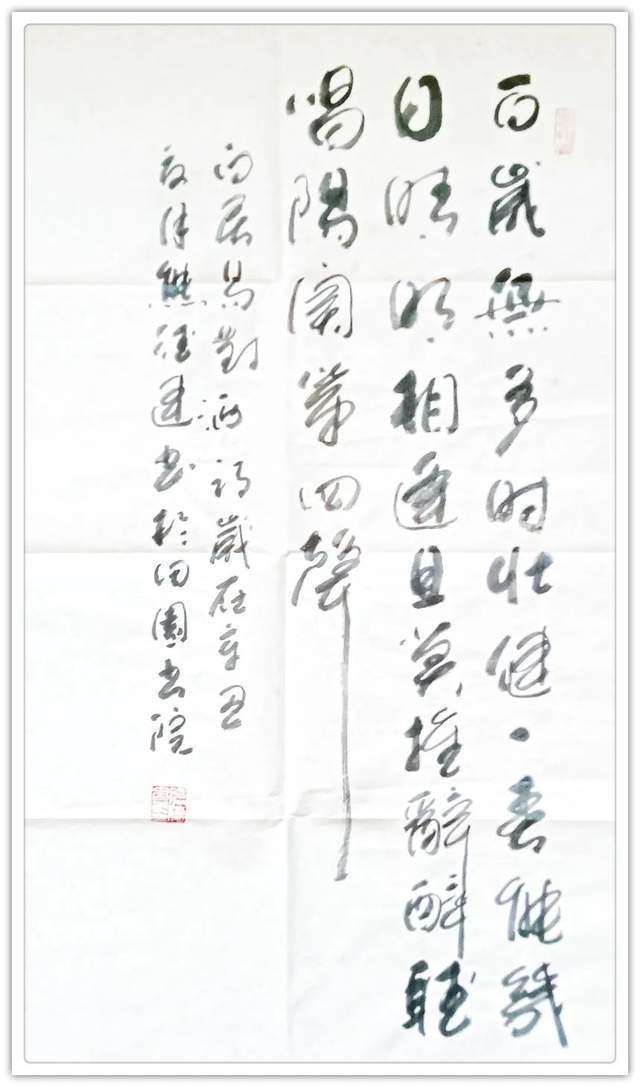 百歲無多时壮健一春能幾
日晴明相逢且莫推辭醉聽
唱陽関第四聲
白居易對酒詩歲在辛丑
津熊建书於田園书院